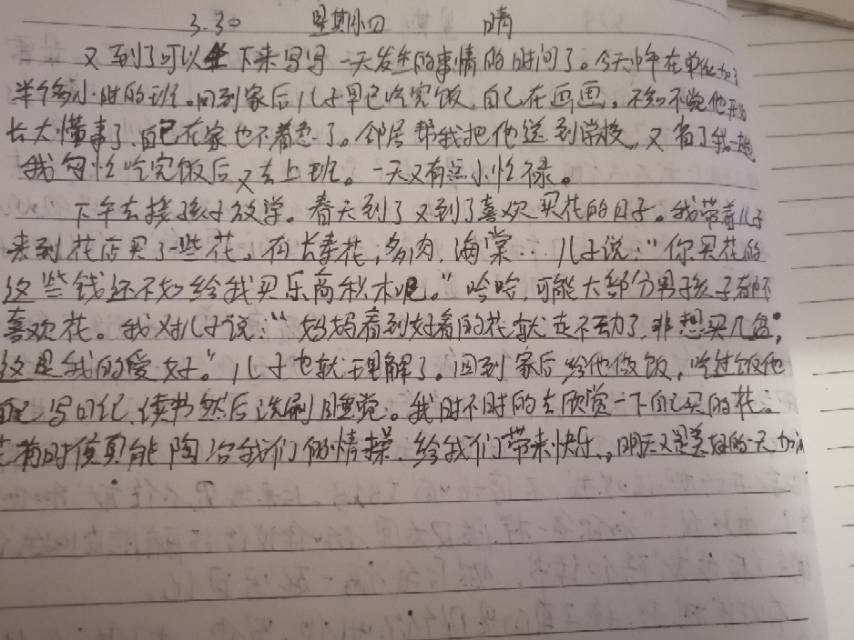 3.30 星期四 晴
又到了可以坐下来写写一天发生的事情的时间了。今天中午在单位加了
半个多小时的班。回到家后儿子早已吃完饭，自己在画画。不知不觉他开始
长大懂事了，自己在家也不着急了。邻居帮我把他送到学校，又省了我一趟
我匆忙吃完饭后又去上班。一天又有点小忙碌。
下午去接孩子放学。春天到了又到了喜欢买花的日子。我带着儿子
来到花店买了一些花，有长寿花，多肉，海棠…儿子说：“你买花的
这些钱还不如给我买乐高积木呢。”哈哈，可能大部分男孩子都不
喜欢花。我对儿子说：“妈妈看到好看的花就走不动了，非想买几盆，
这是我的爱好。”儿子也就理解了。回到家后给他做饭，吃过饭他
自己写日记，读书然后洗刷睡觉。我时不时的去欣赏一下自己买的花。
花有时候真能陶冶我们的情操，给我们带来快乐。明天又是美好的一天加油